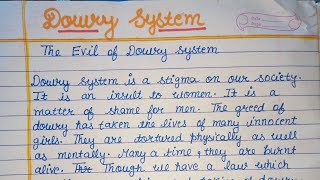 Dowry System
The Evil of Dowry System
Dowry System is a stigma on our society.
It is an insult to women. It is a
matter of shame for men. The greed of
dowry has taken the lives of many innocent
girls. They are tortured physically as well
as mentally. Many a time, they are burnt
alive. Though we have a law which